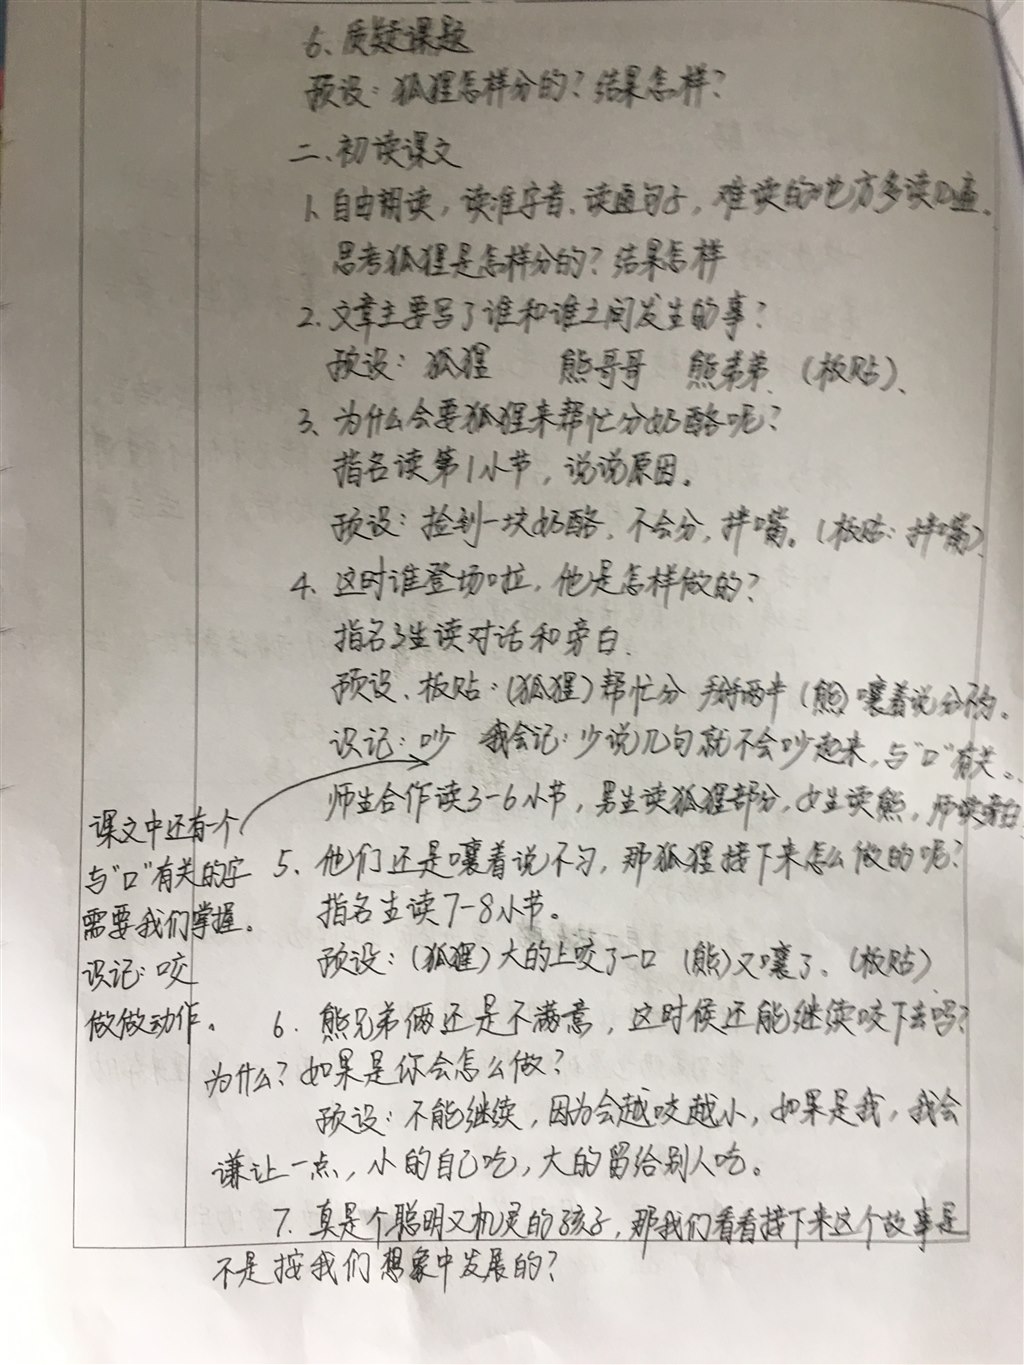 6、质疑课题
预设：狐狸怎样分的？结果怎样？
二、初读课文
1、自由朗读，读准字音、读通句子，难读的地方多读几遍。
思考狐狸是怎样分的？结果怎样
2、文章主要写了谁和谁之间发生的事？
预设：狐狸 熊哥哥 熊弟弟 （板贴）、
3、为什么会要狐狸来帮忙分奶酪呢？
指名读第1小节，说说原因。
预设：捡到一块奶酪，不会分，拌嘴。（板贴：拌嘴）
4、这时谁登场啦，他是怎样做的？
指名3生读对话和旁白.
预设、板贴：（狐狸）帮忙分 掰两半（熊）嚷着说分不匀。
识记：吵 我会记：少说几句就不会吵起来，与“口”有关。
师生合作读3-6小节，男生读狐狸部分，女生读熊，师读旁白
课文中还有一个
与“口”有关的字
需要我们掌握。
识记：咬
做做动作。
5、他们还是嚷着说不匀，那狐狸接下来怎么做的呢？
指名生读7-8小节。
预设：（狐狸）大的上咬了一口 （熊）又嚷了、（板贴）
6、熊兄弟俩还是不满意，这时候还能继续咬下去吗？
为什么？如果是你会怎么做？
预设：不能继续，因为会越咬越小，如果是我，我会
谦让一点，小的自己吃，大的留给别人吃。
7、真是个聪明又机灵的孩子，那我们看看接下来这个故事是
不是按我们想象中发展的？